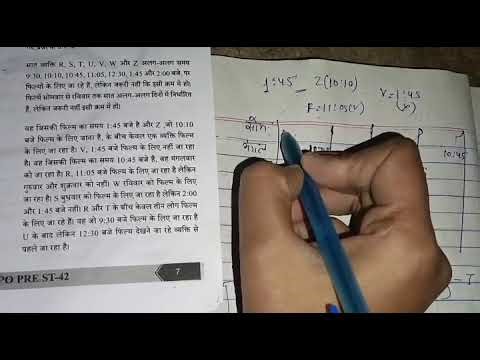 सात व्यक्ति R, S, T, U, V, W और Z अलग-अलग समय
9:30, 10:10, 10:45, 11:05, 12:30, 1:45 और 2:00 बजे, पर
फिल्मो के लिए जा रहे हैं, लेकिन जरूरी नहीं कि इसी क्रम में हों।
फिल्में सोमवार से रविवार तक सात अलग-अलग दिनों में निर्धारित
हैं, लेकिन जरूरी नहीं इसी क्रम में हों।
वह जिसकी फिल्म का समय 1:45 बजे है और Z ,जो 10:10
बजे फिल्म के लिए जाता है, के बीच केवल एक व्यक्ति फिल्म
के लिए जा रहा है। V, 1:45 बजे फिल्म के लिए नहीं जा रहा
है। वह जिसकी फिल्म का समय 10:45 बजे है, वह मंगलवार
को जा रहा है। R, 11:05 बजे फिल्म के लिए जा रहा है लेकिन
गुरुवार और शुक्रवार को नहीं। W रविवार को फिल्म के लिए
जा रहा है। S बुधवार को फिल्म के लिए जा रहा है लेकिन 2:00
और 1:45 बजे नहीं। R और T के बीच केवल तीन लोग फिल्म
के लिए जा रहे हैं। वह जो 9:30 बजे फिल्म के लिए जा रहा है
U के बाद लेकिन 12:30 बजे फिल्म देखने जा रहे व्यक्ति से
पहले जा रहा है।
PO PRE ST-42
7
1:45 - Z(10:10)
V=1:45
(x)
सोम
मंगल
10:45
T